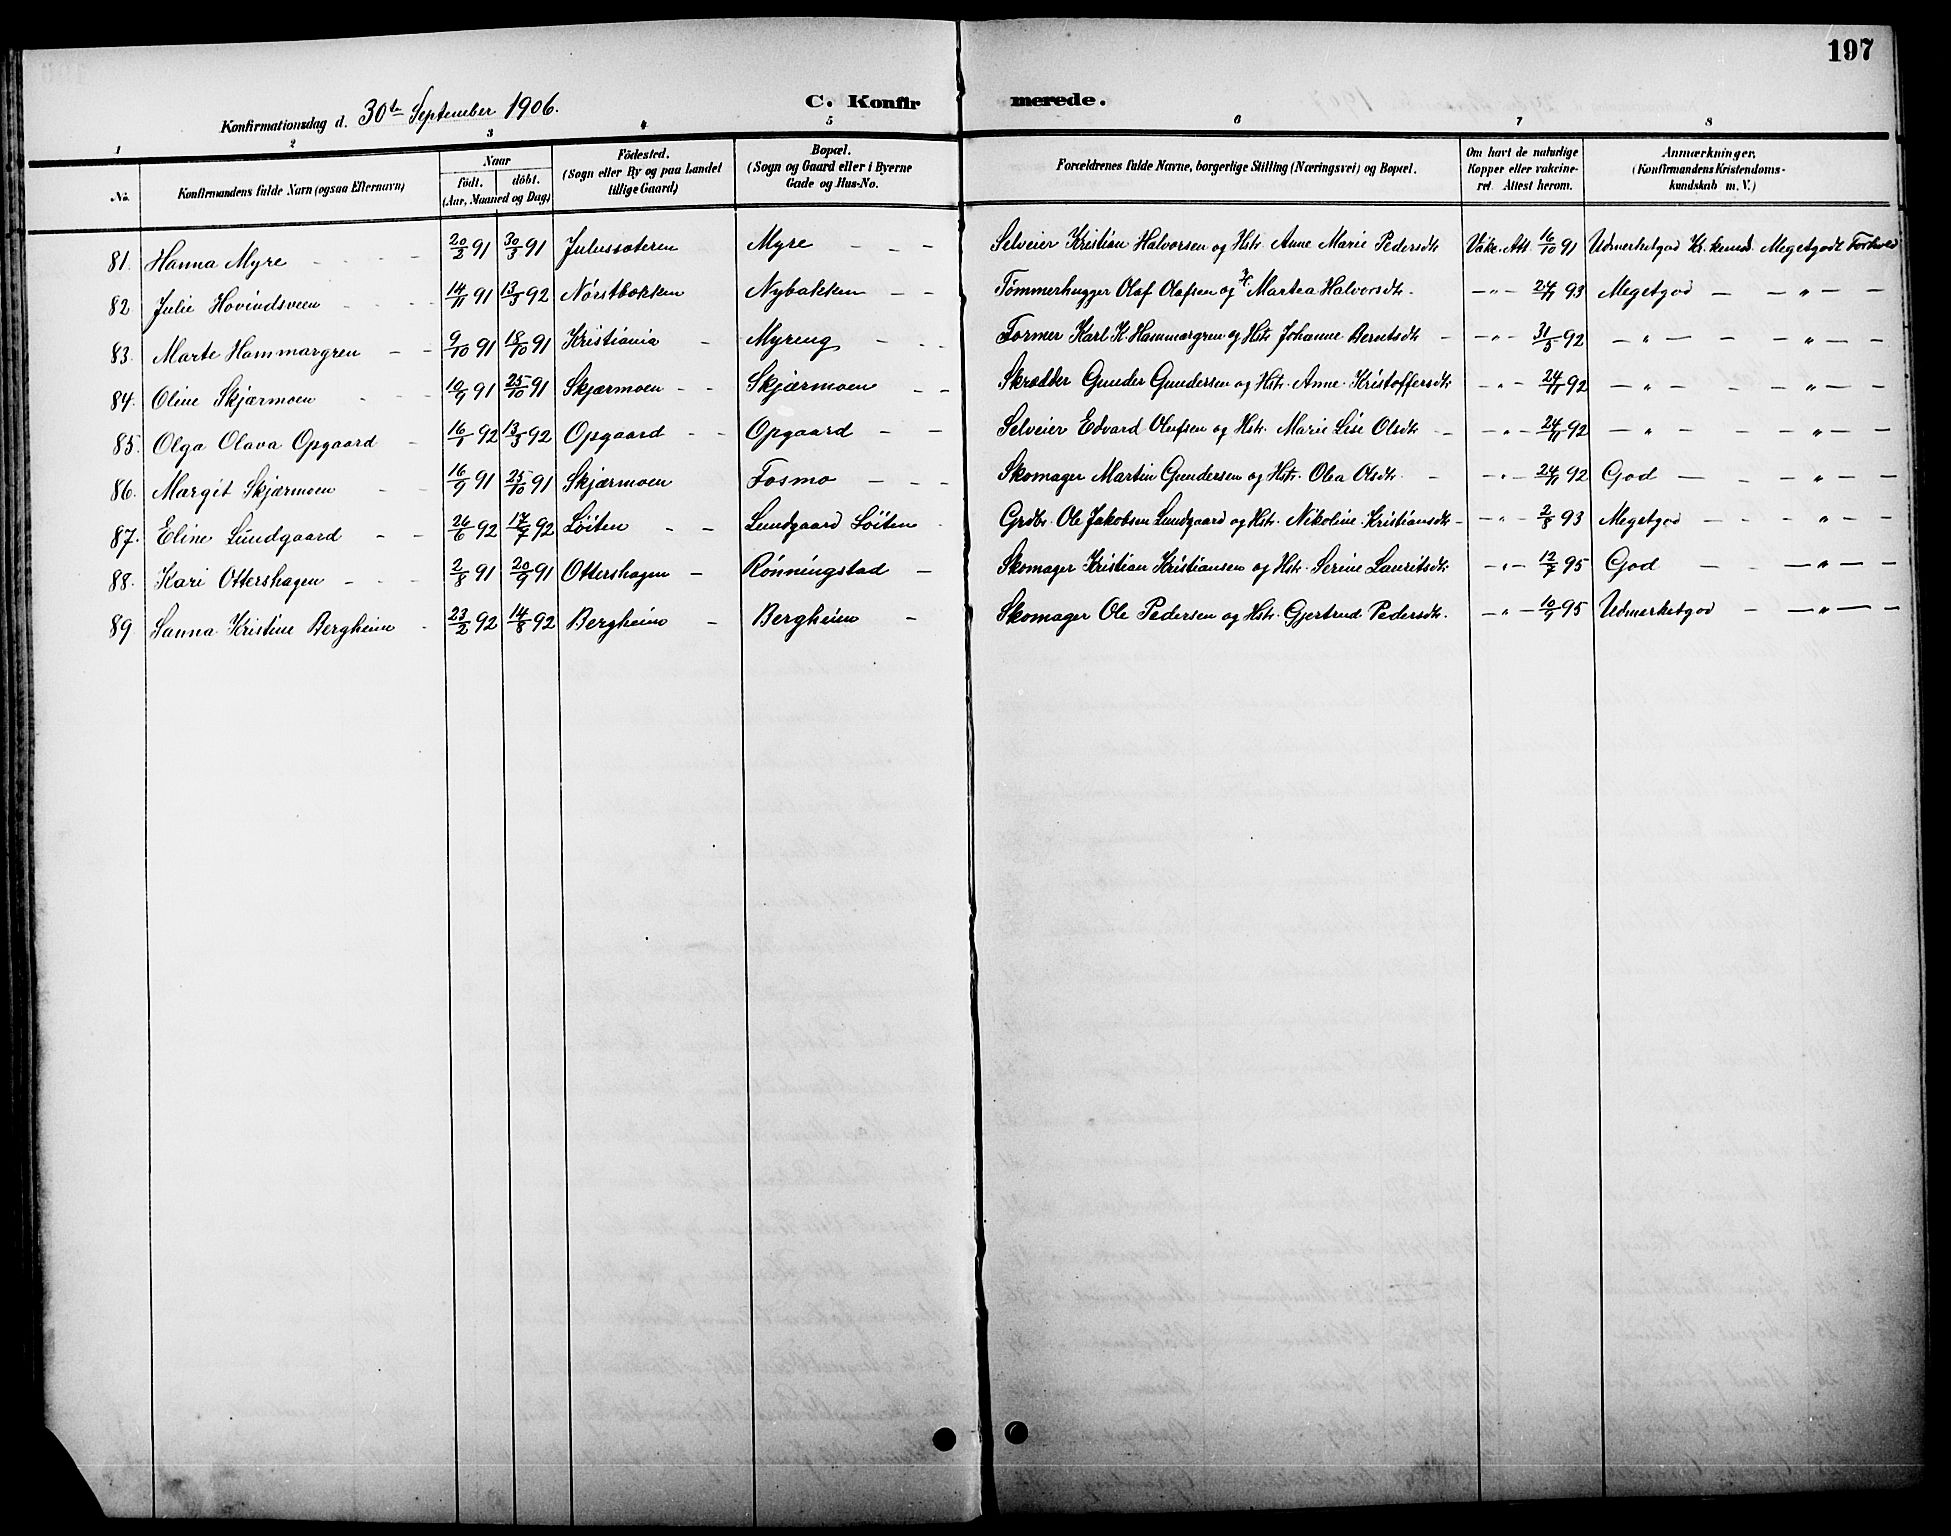 197
Konfirmationsdag d. 30te September 1906.
C. Konfirmerede.
1 2 3 4 5 6 7 8
No. Konfirmandens fulde Navn (ogsaa Efternavn) Naar født. døbt. (Aar, Maaned og Dag) Fødested. (Sogn eller By og paa Landet tillige Gaard) Bopæl. (Sogn og Gaard eller i Byerne Gade og Hus-No. Forældrenes fulde Navne, borgerlige Stilling (Næringsvei) og Bopæl. Om havt de naturlige Kopper eller vakcineret. Attest herom. Anmærkninger. (Konfirmandens Kristendomskundskab m. V.)
81. Hanna Myre 20/2 91 30/3 91 Julussæteren Myre Selveier Kristian Halvorsen og Hstr. Anne Marie Pedersdtr Vakc. Att. 16/10 91 Udmerketgod Kr. kunds. Megetgodt Forhold
82 Julie Hovindsveen 14/11 91 13/3 92 Nørstbakken Nybakken Tømmerhugger Olaf Olafsen og Martea Halvorsdtr. — " — 24/11 93 Megetgod — — " — —
83. Marte Hammargren 9/10 91 18/10 91 Kristiania Myreng Former Karl K Hammargren og Hstr Johanne Berntsdtr — " — 31/5 92 — " — — — " — —
84. Oline Skjærmoen 10/9 91 25/10 91 Skjærmoen Skjærmoen Skrædder Gunder Gundersen og Hstr. Anne Kristoffersdtr — " — 24/11 92 — " — — — " — —
85. Olga Olava Opgaard 16/1 92 13/3 92 Opgaard Opgaard Selveier Edvard Olufsen og Hstr. Marie Lise Olsdtr — " — 24/11 92 — " — — — " — —
86. Margit Skjærmoen 16/9 91 25/10 91 Skjærmoen Fosmo Skomager Martin Gundersen og Hstr. Olea Olsdtr. — " — 24/11 92 God — — " — —
87. Eline Lundgaard 26/6 92 17/7 92 Løiten Lundgaard Løiten Grdbr. Ole Jakobsen Lundgaard og Hstr. Nikoline Kristiansdtr — " — 2/8 93 Megetgod — — " — —
88. Kari Ottershagen 2/8 91 20/9 91 Ottershagen Rønningstad Skomager Kristian Kristiansen og Hstr. Serine Lauritsdtr — " — 12/7 95 God — — " — —
89 Sanna Kristine Bergheim 23/2 92 14/8 92 Bergheim Bergheim Skomager Ole Pedersen og Hstr. Gjertrud Pedersdtr. — " — 10/9 95 Udmerketgod — — " — —